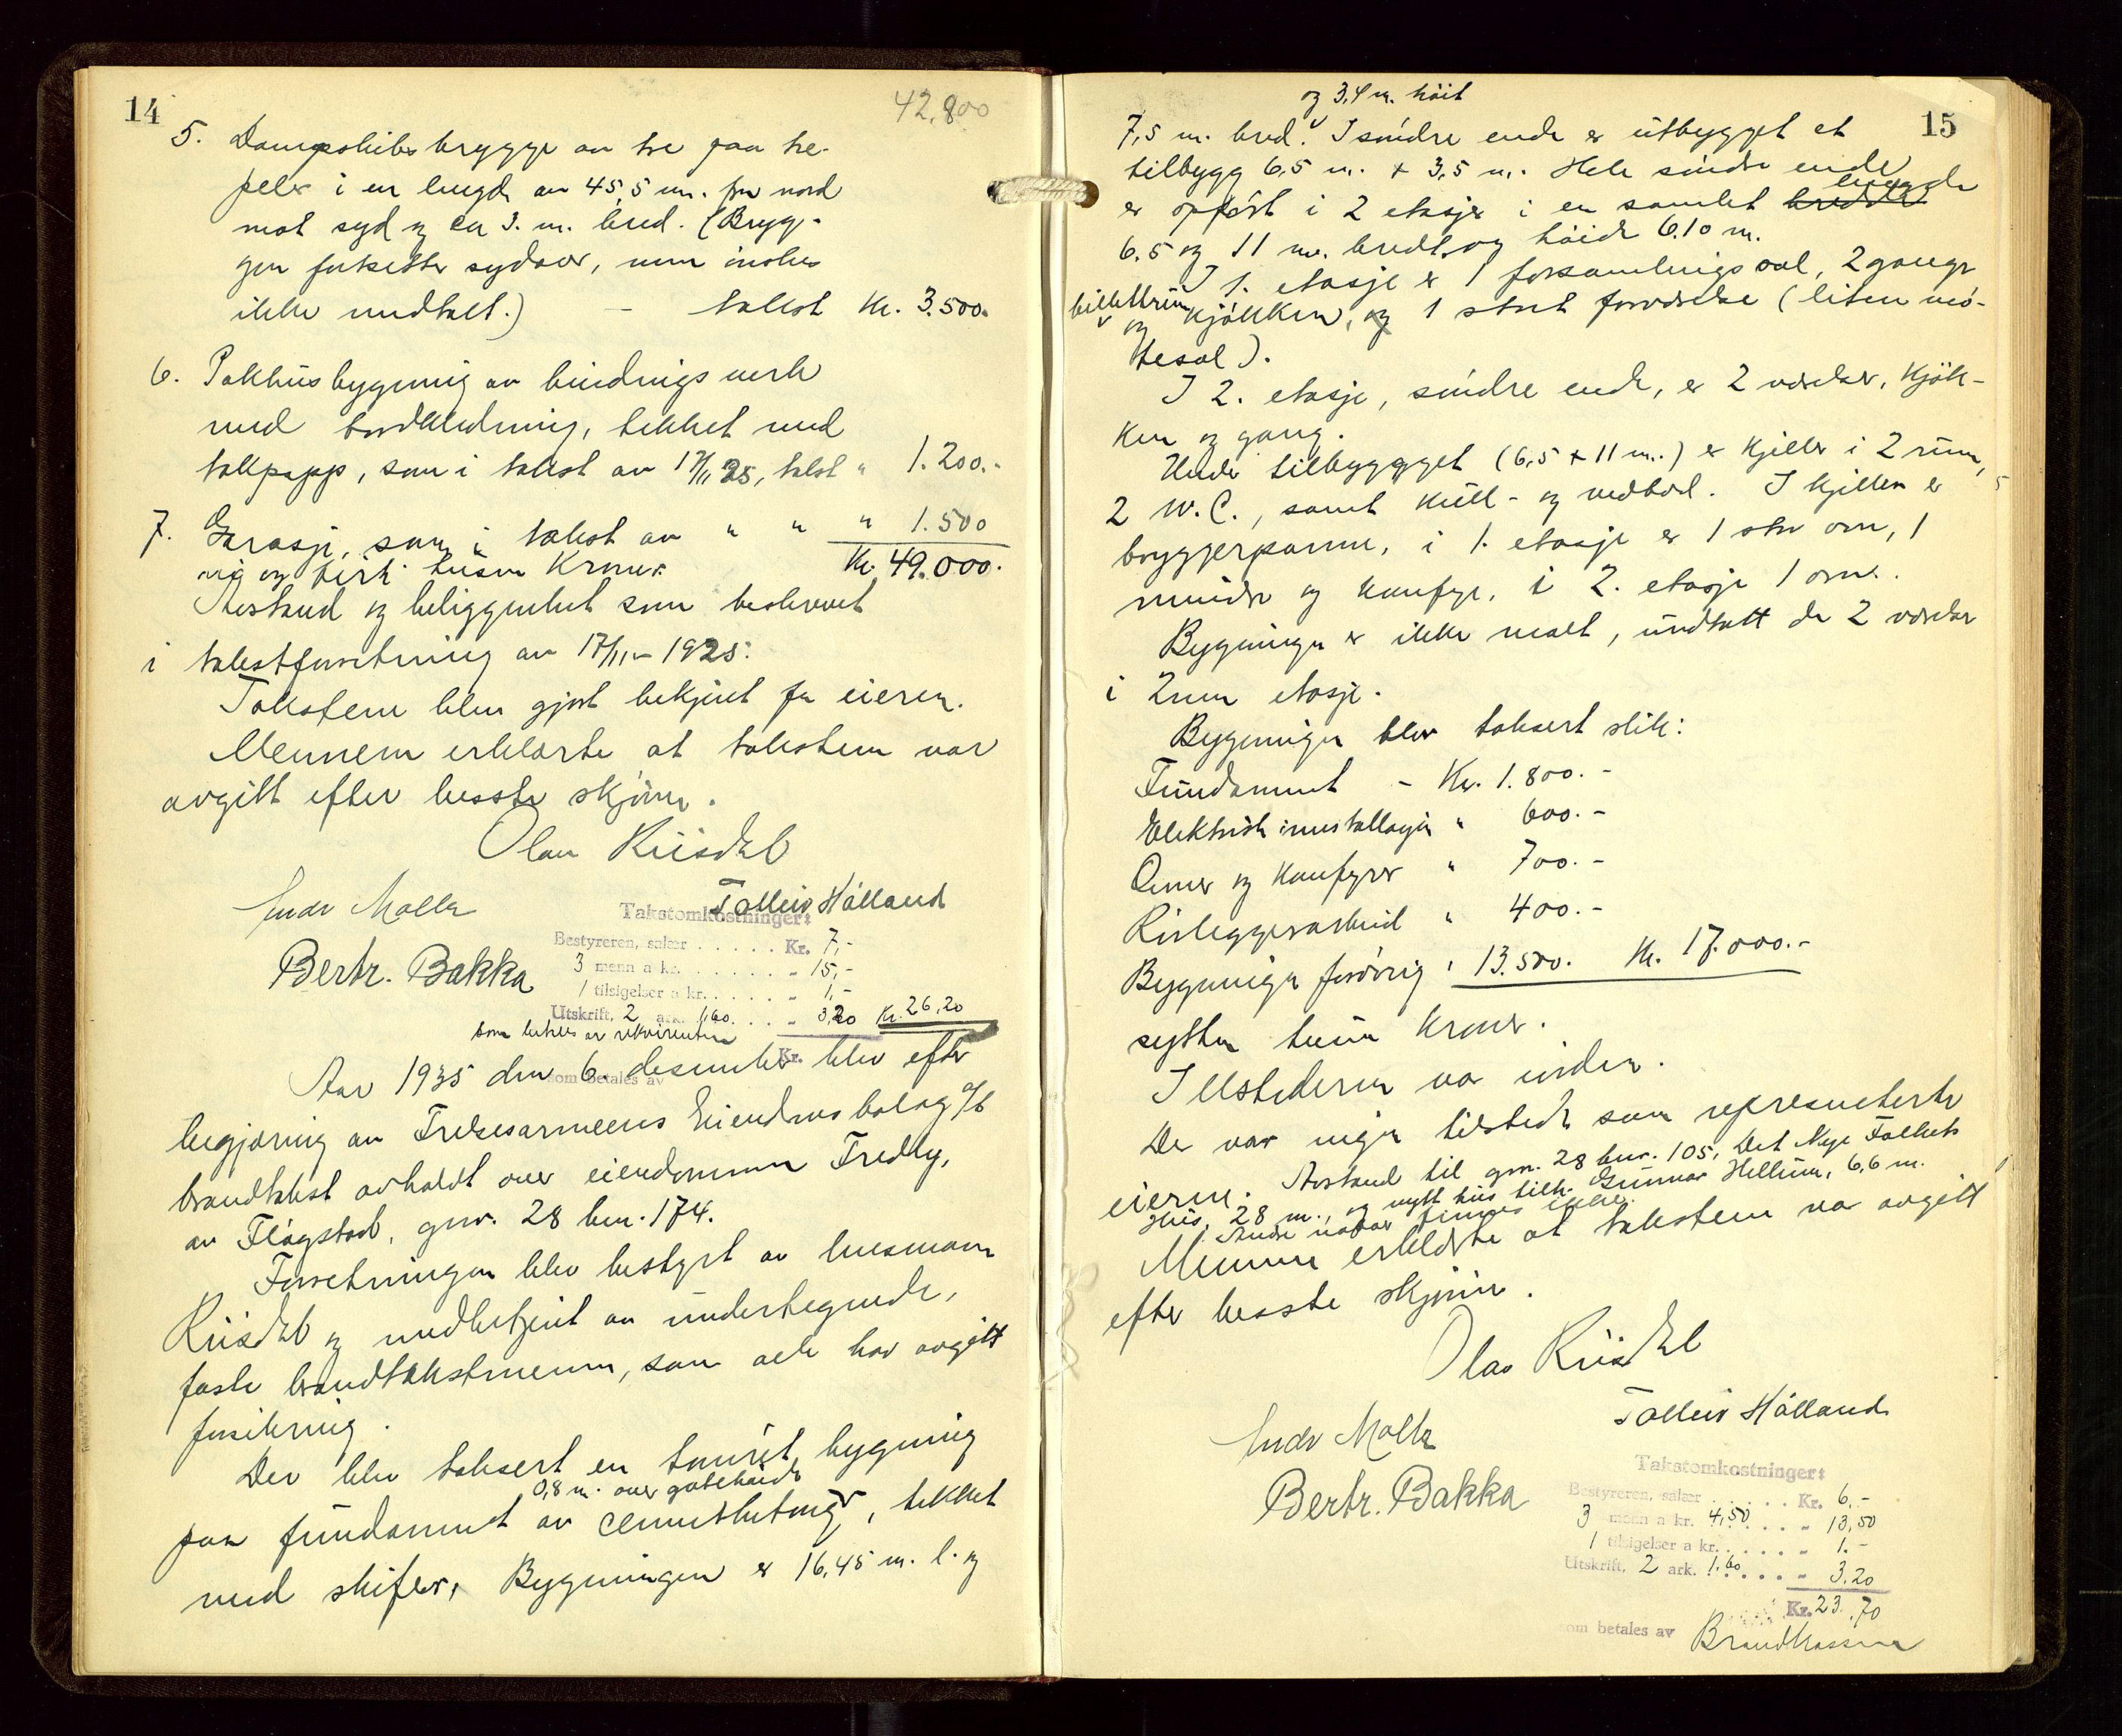 14
42.800
5. Dampskibsbrygge av tre paa tre-
peler i en lengde av 45,5 m. fra nord
mot syd og ca 3. m. bred. (Bryg-
gen fortsetter sydover, men ønskes
ikke medtatt.) - takst Kr. 3.500.
6. Pakhusbygning av bindingsverk
med bordkledning, tekket med
takpapp, som i takst av 17/11 25, takst " 1.200.-
7. Garasje, som i takst av " " " 1.500
ni og førti tusen Kroner. Kr. 49.000.
Avstand og beliggenhet som beskrevet
i takstforretning av 17/11 - 1925.
Taksten blev gjort bekjent for eieren.
Mennene erklærte at taksten var
avgitt efter beste skjønn.
Olav Riisdal
Endr Molla
Tolleiv Hålland
Bertr. Bakka
Takstomkostninger:
Bestyreren, salær . . . . . Kr. 7,-
3 menn a kr. . . . . . . . " 15,-
1 tilsigelser a kr. . . . . . " 1,-
Utskrift, 2 ark. 1,60. . . . " 3,20 Kr. 26,20
som betales av rekvirenten
Kr.
som betales av
Aar 1935 den 6. desember blev efter
begjæring av Frelsesarmeens Eiendomsbolag A/S
brandtakst avholdt over eiendommen Fredly,
av Flågstad, gnr. 28 bnr. 174.
Forretningen blev bestyrt av lensmann
Riisdal og medbetjent av undertegnede,
faste brandtakstmenn, som alle har avgitt
forsikring.
Der blev taksert en tømret bygning
0,8 m. over gatehøide
paa fundament av cementbetong, tekket
med skifer. Bygningen er 16,45 m. l. og
15
og 3,4 m. høit
7,5 m. bred. I søndre ende er utbygget et
tilbygg 6,5 m. x 3,5 m. Hele søndre ende
lengde
er opført i 2 etasjer i en samlet bredde
6.5 og 11 m. bredt, og høide 6.10 m.
I 1. etasje er 1 forsamlingssal, 2 ganger
og kjøkken, og 1 stort forværelse (liten mø-
tesal).
I 2. etasje, søndre ende, er 2 værelser, kjøk-
ken og gang.
Under tilbygget (6,5 x 11 m.) er kjeller i 2 rum,
2 W.C., samt kull- og vedbod. I kjelleren er
bryggerpanne, i 1. etasje er 1 stor ovn, 1
mindre og komfyr, i 2. etasje 1 ovn.
Bygningen er ikke malt, undtatt de 2 værelser
i 2nen etasje.
Bygningen blev taksert slik:
Fundament - Kr. 1.800.-
Elektrisk installasjon " 600.-
Ovner og komfyrer " 700.-
Rørleggerarbeid " 400.-
Bygningen forøvrig " 13.500. Kr. 17.000.-
sytten tusen kroner.
Ildstederne var i orden.
Der var ingen tilstede som representerte
eieren. Avstand til gnr. 28 bnr. 105, Det Nye Folkets
Hus, 28 m., og nytt hus tilh. Gunnar Hellum, 6,6 m.
Andre naboer finnes ikke.
Mennene erklærte at taksten var avgitt
efter beste skjønn.
Olav Riisdal
Tolleiv Hålland
Endr Molla
Bertr. Bakka
Takstomkostninger:
Bestyreren, salær . . . . . Kr. 6,-
3 menn a kr. 4,50 . . . . " 13,50
1 tilsigelser a kr. . . . . . " 1.-
Utskrift, 2 ark. 1.60 . . . . " 3.20
Kr. 23,70
som betales av Brandkassen